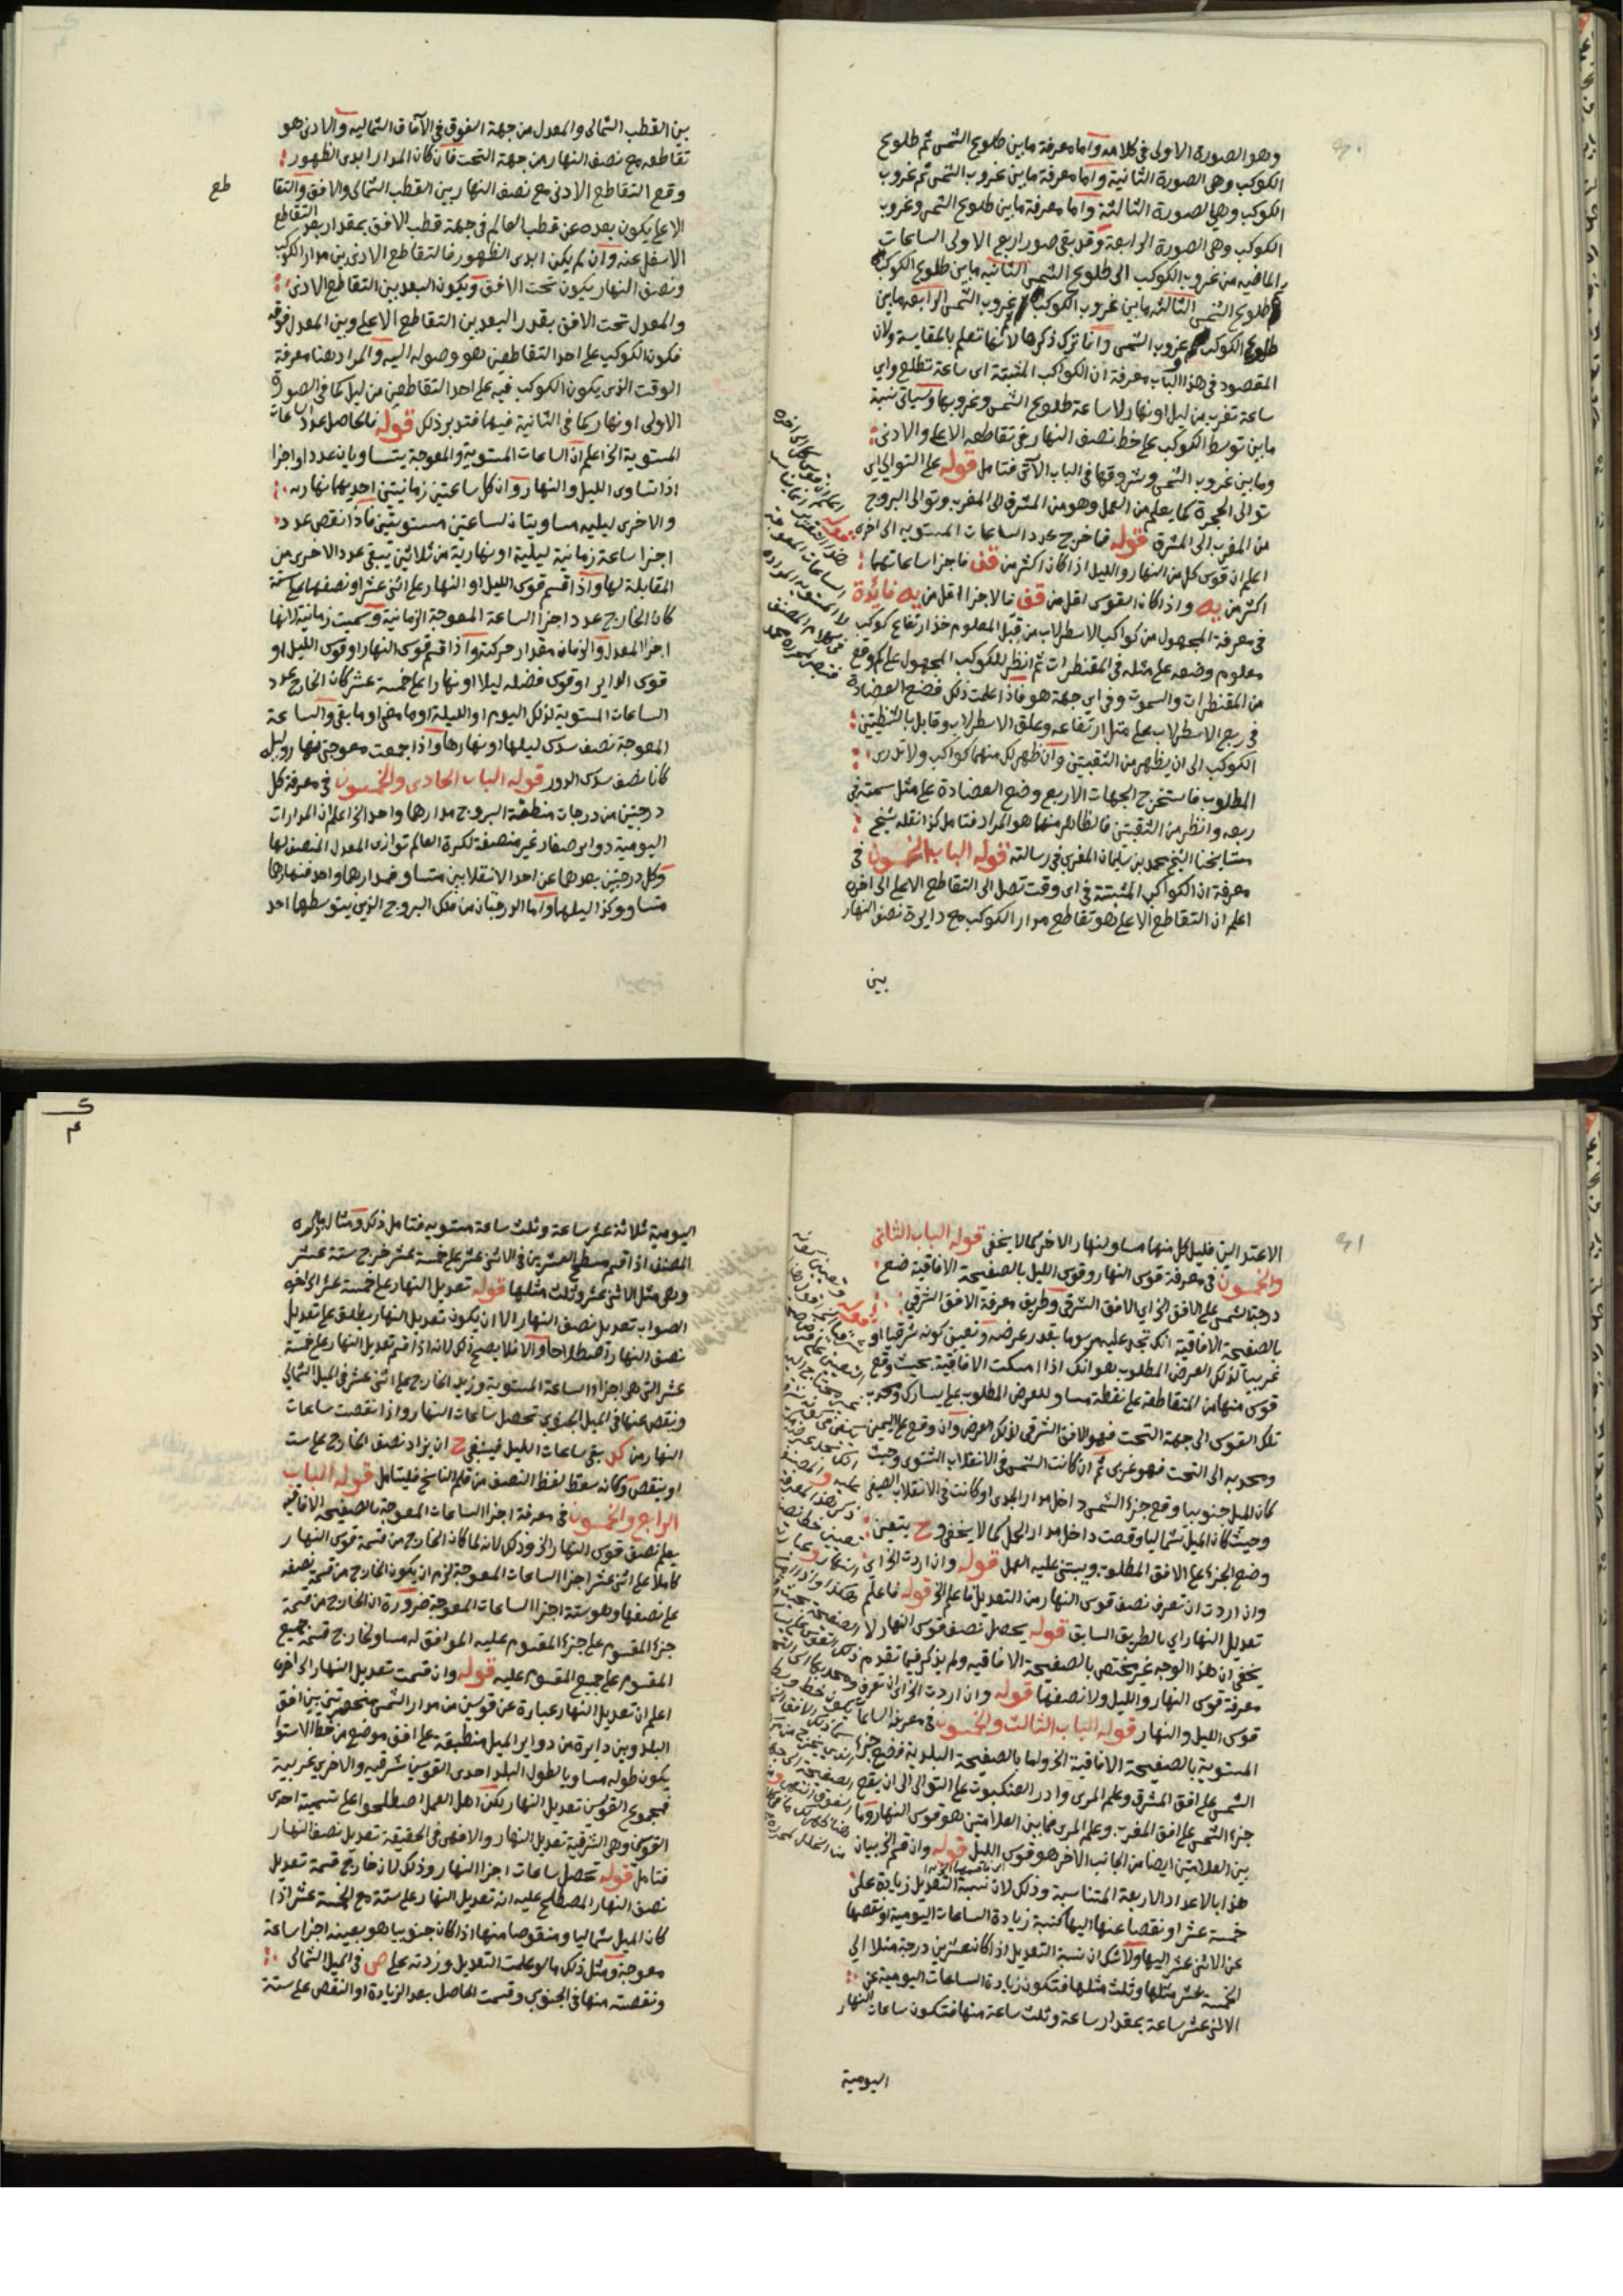 وهو الصورة الاولى في كلامه واما معرفة مابين طلوع الشمس ثم طلوع
الكوكب وهي الصورة الثانية واما معرفة مابين غروب الشمس ثم غروب
الكوكب وهي الصورة الثالثة واما معرفة مابين طلوع الشمس وغروب
الكوكب وهي الصورة الرابعة وقد بقى صور اربع الاولى الساعات
الماضيه من غروب الكوكب الى طلوع الشمس الثانيه مابين طلوع الكوكب
وطلوع الشمس الثالثه مابين غروب الكوكب وغروب الشمس الرابعه مابين
طلوع الكوكب وغروب الشمس وانما ترك ذكرها لانها تعلم بالمقايسة ولان
المقصود في هذا الباب معرفة ان الكواكب المثبتة اى ساعة تطلع واي
ساعة تغرب من ليل او نهار لا ساعة طلوع الشمس وغروبها وسياتى نسبة
مابين توسط الكوكب على خط نصف النهار في تقاطعه الاعلى والادنى
ومابين غروب الشمس وشروقها في الباب الآتى فتامل قوله على التوالي اي
توالى الحجرة كما يعلم من العمل وهو من المشرق الى المغرب وتوالى البروج
من المغرب الى المشرق قوله فما خرج عدد الساعات المستويه الى اخره
اعلم ان قوس كل من النهار والليل اذا كان اكثر من قف فاجزا ساعاتهما
اكثر من يه واذا كان القوس اقل من قف فالاجزا اقل من يه فائدة
في معرفة المجهول من كواكب الاسطرلاب من قبل المعلوم خذ ارتفاع كوكب
معلوم وضعه على مثله في المقنطرات ثم انظر للكوكب المجهول على كم وقع
من المقنطرات والسموت وفي اي جهة هو فاذا علمت ذلك فضع العضادة
في ربع الاسطرلاب على مثل ارتفاعه وعلق الاسطرلاب وقابل بالشظيتين
الكوكب الى ان يظهر من الثقبتين وان ظهر لك منهما كواكب ولا تدرى
المطلوب فاستخرج الجهات الاربع وضع العضادة على مثل سمته في
ربعه وانظر من الثقبتين فالظاهر منهما هو المراد فتامل كذا نقله شيخ
مشايخنا الشيخ محمد بن سليمان المغربي في رسالته قوله الباب الخمسون في
معرفة ان الكواكب المثبتة في اى وقت تصل الى التقاطع الاعلى الى اخره
اعلم ان التقاطع الاعلى هو تقاطع مدار الكوكب مع دايرة نصف النهار
بين
بين القطب الشمالى والمعدل من جهة الفوق في الآفاق الشماليه والادنى هو
تقاطعه مع نصف النهار من جهة التحت فان كان المدار ابدى الظهور
وقع التقاطع الادنى مع نصف النهار بين القطب الشمالى والافق والتقا
طع
الاعلى يكون بعده عن قطب العالم في جهة قطب الافق بمقدار بعد التقاطع
الاسفل عنه وان لم يكن ابدى الظهور فالتقاطع الادنى بين مدار الكوكب
ونصف النهار يكون تحت الافق ويكون البعد بين التقاطع الادنى
والمعدل تحت الافق بقدر البعد بين التقاطع الاعلى وبين المعدل فوقه
فكون الكوكب على احد التقاطعين هو وصوله اليه والمراد هنا معرفة
الوقت الذى يكون الكوكب فيه على احد التقاطعين من ليل كما في الصورة
الاولى او نهار كما في الثانية فيهما فتدبر ذلك قوله فالحاصل عدد الساعات
المستوية الخ اعلم ان الساعات المستوية والمعوجة يتساويان عددا واجزا
اذا تساوى الليل والنهار وان كل ساعتين زمانيتين احديهما نهاريه
والاخرى ليليه مساويتان لساعتين مستويتين فاذا نقص عدد
اجزا ساعة زمانية ليلية او نهارية من ثلاثين يبقى عدد الاخرى من
المقابلة لها واذا قسم قوس الليل او النهار على اثنى عشر او نصفهما على ستة
كان الخارج عدد اجزا الساعة المعوجة الزمانية وسميت زمانية لانها
اجزا المعدل والزمان مقدار حركته واذا قسم قوس النهار او قوس الليل او
قوس الداير او قوس فضله ليلا او نهارا على خمسة عشر كان الخارج عدد
الساعات المستوية لذلك اليوم او الليلة او ما مضى او ما بقى والساعة
المعوجة نصف سدس ليلها او نهارها واذا جمعت معوجتى نهار وليل
كانا نصف سدس الدور قوله الباب الحادى والخمسون في معرفة كل
درجتين من درجات منطقة البروج مدارهما واحد الخ اعلم ان المدارات
اليومية دواير صغار غير منصفة لكرة العالم توازى المعدل المنصف لها
وكل درجتين بعدهما عن احد الانقلابين متساو فمدارهما واحد فنهارهما
متساو وكذا ليلهما واما الدرجتان من فلك البروج الذين يتوسطهما احد
الاعتدالين فليل كل منهما مساو لنهار الاخر كما لا يخفى قوله الباب الثانى
والخمسون في معرفة قوس النهار وقوس الليل بالصفيحة الافاقية ضع
درجة الشمس على الافق الخ اي الافق الشرقى وطريق معرفة الافق الشرقي
بالصفيحة الافاقية انك تجد عليه مرسوما بقدر عرضه وتعيين كونه شرقيا او
غربيا لذلك العرض المطلوب هو انك اذا امسكت الافاقية بحيث وقع
قوس منها من المتقاطعة على نقطة مساو للعرض المطلوب على يسارك ومحدب
تلك القوس الى جهة التحت فهو الافق الشرقى لذلك العرض وان وقع على اليمين
ومحدبه الى التحت فهو غربى ثم ان كانت الشمس في الانقلاب الشتوى وحيث
كان الميل جنوبيا وقع جزء الشمس داخل مدار الجدى او كانت في الانقلاب الصيفى
وحيث كان الميل شماليا وقعت داخل مدار الحمل كما لا يخفى وح يتعين
وضع الجزء على الافق المطلوب ويبتنى عليه العمل قوله وان اردت الخ اى
وان اردت ان تعرف نصف قوس النهار من التعديل فاعلم الخ قوله فاعلم
تعديل النهار اي بالطريق السابق قوله يحصل نصف قوس النهار لا
يخفى ان هذا الوجه غير مختص بالصفيحة الافاقيه ولم يذكر فيما تقدم
معرفة قوس النهار والليل ولا نصفهما قوله وان اردت الخ اى ان تعرف
قوس الليل والنهار قوله الباب الثالث والخمسون في معرفة الساعا
المستوية بالصفيحة الافاقية الخ ولما بالصفيحة البلدية فضع جزء
الشمس على افق المشرق وعلم المرى وادر العنكبوت على التوالى الى ان يقع
جزء الشمس على افق المغرب وعلم المرى فما بين العلامتين هو قوس النهار وما
بين العلامتين ايضا من الجانب الاخر هو قوس الليل قوله وان قسم الخ بيان
هذا بالاعداد الاربعة المتناسبة وذلك لان نسبة التعديل زيادة على
خمسة عشر او نقصا عنها اليها كنسبة زيادة الساعات اليومية او نقصها
عن الاثنى عشر اليها ولا شك ان نسبة التعديل اذا كان عشرين درجة مثلا الى
الخمسة عشر مثلها وثلث مثلها فتكون زيادة الساعات اليومية عن
الاثنى عشر ساعة بمقدار ساعة وثلث ساعة منها فتكون ساعات النهار
اليومية
اليومية ثلاثة عشر ساعة وثلث ساعة مستويه فتامل ذلك ومثال ما ذكره
المصنف اذا قسم مسطح العشرين في الاثنى عشر على خمسة عشر خرج ستة عشر
وهى مثل الاثنى عشر وثلث مثلها قوله تعديل النهار على خمسة عشر الى اخره
الصواب تعديل نصف النهار الا ان يكون تعديل النهار يطلق على تعديل
نصف النهار اصطلاحا والا فلا يصح ذلك لانه اذا قسم تعديل النهار على خمسة
عشر التى هى اجزاء الساعة المستوية وزيد الخارج على اثنى عشر في الميل الشمالي
ونقص عنها في الميل الجنوبي تحصل ساعات النهار واذا نقصت ساعات
النهار من كد بقى ساعات الليل فينبغى ح ان يزاد نصف الخارج على ست
او ينقص وكانه سقط لفظ النصف من قلم الناسخ فليتامل قوله الباب
الرابع والخمسون في معرفة اجزا الساعات المعوجة بالصفيحة الافاقيه
يعلم نصف قوس النهار الخ وذلك لانه لما كان الخارج من قسمة قوس النهار
كاملا على اثنى عشر اجزا الساعات المعوجة لزم ان يكون الخارج من قسمة نصفه
على نصفها وهو ستة اجزا الساعات المعوجة ضرورة ان الخارج من قسمة
جزء المقسوم على جزء المقسوم عليه الموافق له مساو لخارج قسمة جميع
المقسوم على جميع المقسوم عليه قوله وان قسمت تعديل النهار الى اخره
اعلم ان تعديل النهار عبارة عن قوسين من مدار الشمس منحصرتين بين افق
البلد وبين دايرة من دواير الميل منطبقة على افق موضع من خط الاستوا
يكون طوله مساويا لطول البلد احدى القوسين شرقيه والاخرى غربية
فمجموع القوسين تعديل النهار لكن اهل العمل اصطلحوا على تسمية احدى
القوسين وهى الشرقية تعديل النهار والا فهى في الحقيقة تعديل نصف النهار
فتامل قوله تحصل ساعات اجزا النهار وذلك لان خارج قسمة تعديل
نصف النهار المصطلح عليه انه تعديل النهار على ستة مع الخمسة عشر اذا
كان الميل شماليا ومنقوصا منها اذا كان جنوبيا هو بعينه اجزا ساعة
معوجة ومثل ذلك ما لو علمت التعديل وزدته على ص في الميل الشمالى
ونقصته منها في الجنوبي وقسمت الحاصل بعد الزيادة او النقص على ستة